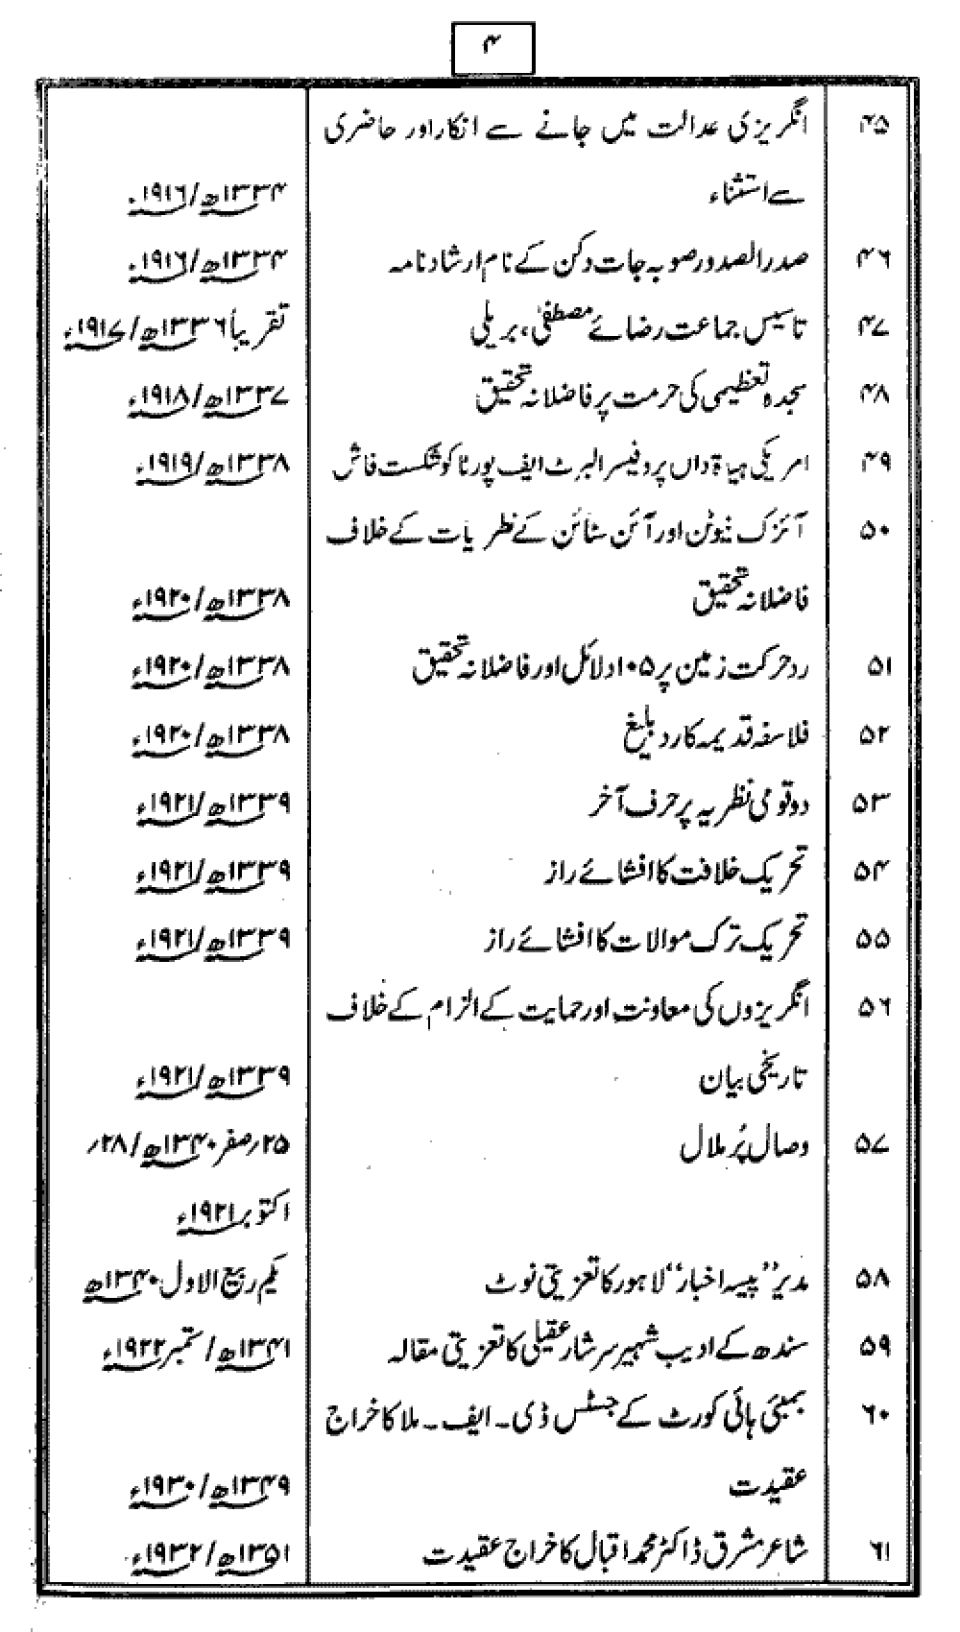 ۴
۴۵ انگریزی عدالت میں جانے سے انکار اور حاضری
سے استثناء ۱۳۳۴ھ/۱۹۱۶ء
۴۶ صدر الصدور صوبہ جات دکن کے نام ارشاد نامہ ۱۳۳۴ھ/۱۹۱۶ء
۴۷ تاسیس جماعت رضائے مصطفیٰ، بریلی تقریباً ۱۳۳۶ھ/۱۹۱۷ء
۴۸ سجدہ تعظیمی کی حرمت پر فاضلانہ تحقیق ۱۳۳۷ھ/۱۹۱۸ء
۴۹ امریکی ہیاۃ داں پروفیسر البرٹ ایف پورٹا کو شکست فاش ۱۳۳۸ھ/۱۹۱۹ء
۵۰ آئزک نیوٹن اور آئن سٹائن کے نظریات کے خلاف
فاضلانہ تحقیق ۱۳۳۸ھ/۱۹۲۰ء
۵۱ رد حرکت زمین پر ۱۰۵ دلائل اور فاضلانہ تحقیق ۱۳۳۸ھ/۱۹۲۰ء
۵۲ فلاسفہ قدیمہ کا رد بلیغ ۱۳۳۸ھ/۱۹۲۰ء
۵۳ دو قومی نظریہ پر حرف آخر ۱۳۳۹ھ/۱۹۲۱ء
۵۴ تحریک خلافت کا افشائے راز ۱۳۳۹ھ/۱۹۲۱ء
۵۵ تحریک ترک موالات کا افشائے راز ۱۳۳۹ھ/۱۹۲۱ء
۵۶ انگریزوں کی معاونت اور حمایت کے الزام کے خلاف
تاریخی بیان ۱۳۳۹ھ/۱۹۲۱ء
۵۷ وصال پُر ملال ۲۵/صفر ۱۳۴۰ھ/۲۸/
اکتوبر ۱۹۲۱ء
۵۸ مدیر ’’پیسہ اخبار‘‘ لاہور کا تعزیتی نوٹ یکم ربیع الاول ۱۳۴۰ھ
۵۹ سندھ کے ادیب شہیر سرشار عقیلی کا تعزیتی مقالہ ۱۳۴۱ھ/ستمبر ۱۹۲۲ء
۶۰ بمبئی ہائی کورٹ کے جسٹس ڈی۔ ایف۔ ملا کا خراج
عقیدت ۱۳۴۹ھ/۱۹۳۰ء
۶۱ شاعر مشرق ڈاکٹر محمد اقبال کا خراج عقیدت ۱۳۵۱ھ/۱۹۳۲ء